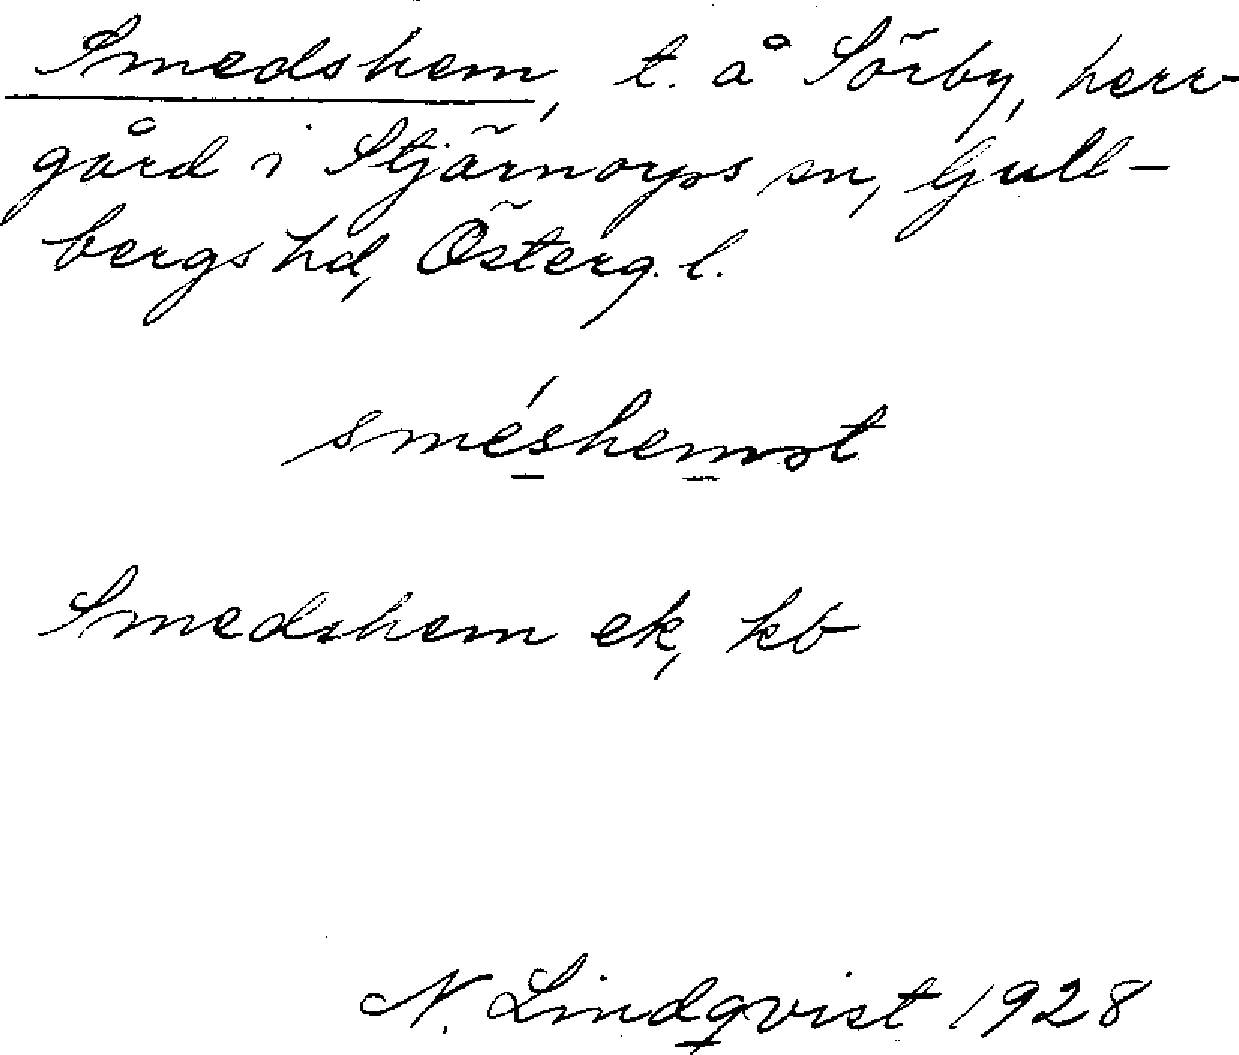 Smedshem, t. å Sörby, herr-
gård i Stjärnorps sn, Gull-
bergs hd, Österg. l.
Smedshem ek, kb
N. Lindqvist 1928